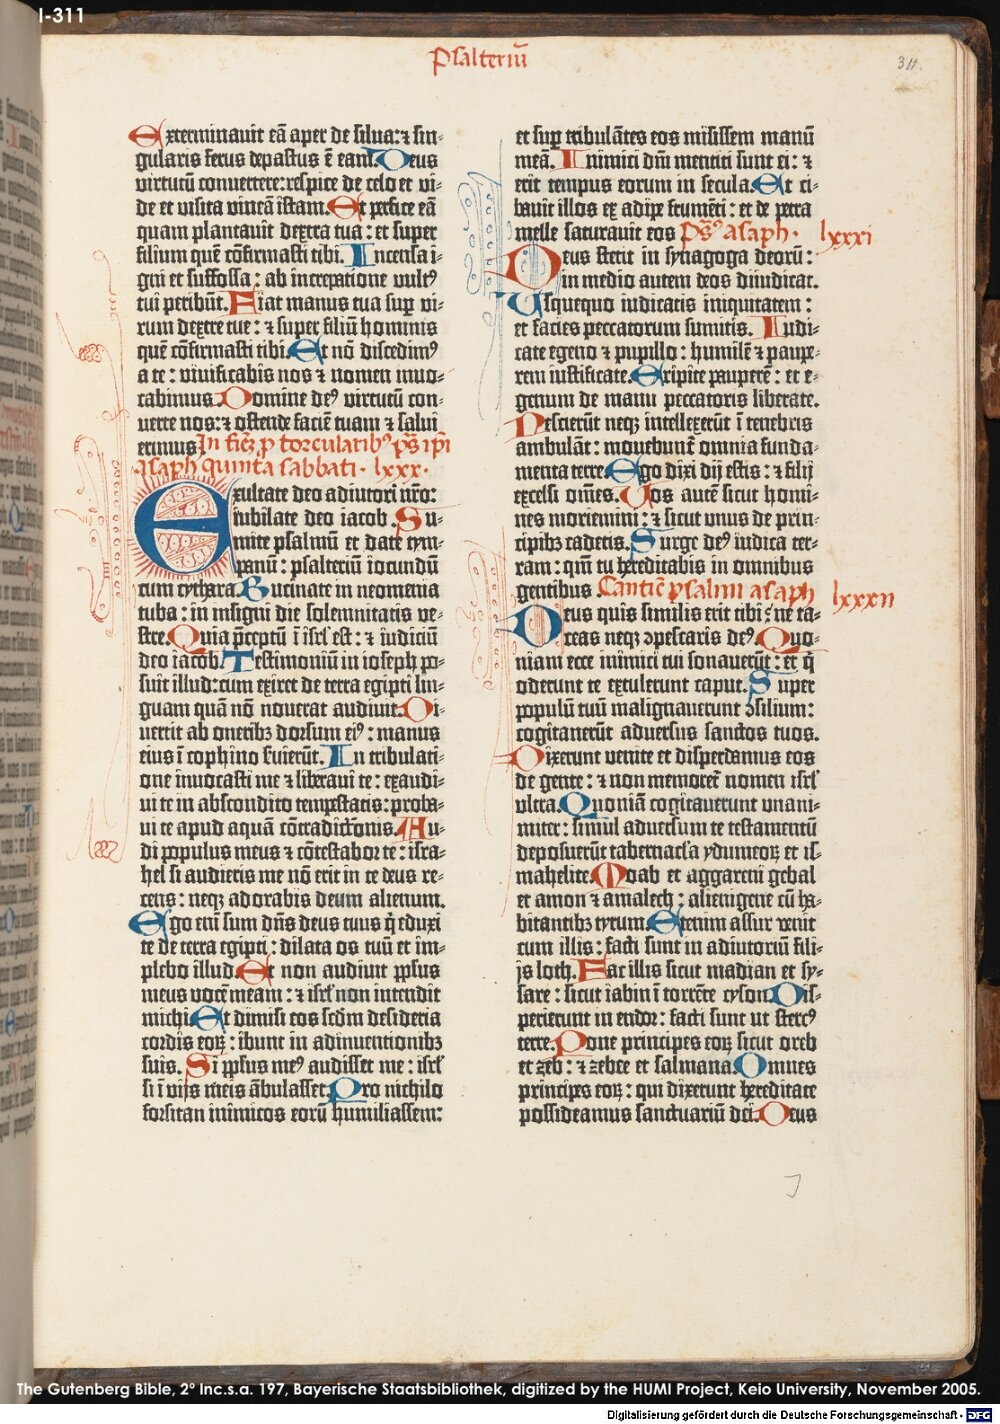 I-311
Psalteriū
311.
Exterminauit eā aper de silua: ⁊ sin-
gularis ferus depastus ē eam. Deus
virtutū conuertere: respice de celo et vi-
de et visita vineā istam. Et perfice eā
quam plantauit dextra tua: et super
filium quē cōfirmasti tibi. Incensa i-
gni et suffossa: ab increpatione vultꝰ
tui peribūt. Fiat manus tua sup vi-
rum dextre tue: ⁊ super filiū hominis
quē cōfirmasti tibi. Et nō discedimꝰ
a te: viuificabis nos ⁊ nomen tuū inuo-
cabimus. Domine deꝰ virtutū con-
uerte nos: ⁊ ostende faciē tuam ⁊ salui
erimus. In finē p torcularibꝰ pꝰs ipi
asaph quinta sabbati · lxxx ·
Exultate deo adiutori nr̄o:
iubilate deo iacob. Su-
mite psalmū et date tym-
panū: psalteriū iocundū
cum cythara. Bucinate in neomenia
tuba: in insigni die solemnitatis ve-
stre. Quia p̄ceptū ī isrl est: ⁊ iudiciū
deo iacob. Testimoniū in ioseph po-
suit illud: cum exiret de terra egipti lin-
guam quā nō nouerat audiuit. Di-
uertit ab oneribꝫ dorsum eiꝰ: manus
eius ī cophino seruierūt. In tribulati-
one inuocasti me ⁊ liberaui te: exaudi-
ui te in abscondito tempestatis: proba-
ui te apud aquā cōtradictionis. Au-
di populus meus ⁊ cōtestabor te: isra-
hel si audieris me nō erit in te deus re-
cens: neqꝫ adorabis deum alienum.
Ego enī sum dn̄s deus tuus q̄ eduxi
te de terra egipti: dilata os tuū et im-
plebo illud. Et non audiuit ppl̄us
meus vocē meam: ⁊ isrl̄ non intendit
michi. Et dimisi eos scdm desideria
cordis eoꝝ: ibunt in adinuentionibꝫ
suis. Si ppl̄us meꝰ audisset me: isrl̄
si ī vijs meis ābulasset. Pro nichilo
forsitan inimicos eorū humiliassem:
et sup tribulātes eos misissem manū
meā. Inimici dn̄i mentiti sunt ei: ⁊
erit tempus eorum in secula. Et ci-
bauit illos ex adipe frumēti: et de petra
melle saturauit eos. Pꝰs asaph · lxxxi
Deus stetit in synagoga deorū:
in medio autem deos diiudicat.
Usquequo iudicatis iniquitatem:
et facies peccatorum sumitis. Iudi-
cate egeno ⁊ pupillo: humilē ⁊ paupe-
rem iustificate. Eripite pauperē: et e-
genum de manu peccatoris liberate.
Nescierūt neqꝫ intellexerūt ī tenebris
ambulāt: mouebunt̄ omnia funda-
menta terre. Ego dixi dij estis: ⁊ filij
excelsi om̄es. Uos autē sicut homi-
nes moriemini: ⁊ sicut unus de prin-
cipibꝫ cadetis. Surge deꝰ iudica ter-
ram: qm̄ tu hereditabis in omnibus
gentibus. Canticū psalmi asaph lxxxii
Deus quis similis erit tibi: ne ta-
ceas neqꝫ ꝯpescaris deꝰ. Quo-
niam ecce inimici tui sonauerūt: et q̄
oderunt te extulerunt caput. Super
populū tuū malignauerunt ꝯsilium:
cogitauerūt aduersus sanctos tuos.
Dixerunt venite et disperdamus eos
de gente: ⁊ non memoret̄ nomen isrl̄
ultra. Quoniā cogitauerunt vnani-
miter: simul aduersum te testamentū
deposuerūt tabernacl̄a ydumeoꝝ et is-
mahelite. Moab et aggareni gebal
et amon ⁊ amalech: alienigene cū ha-
bitantibꝫ tyrum. Etenim assur venit
cum illis: facti sunt in adiutoriū fili-
js loth. Fac illis sicut madian et sy-
sare: sicut iabin ī torrēte cyson. Dis-
perierunt in endor: facti sunt ut stercꝰ
terre. Pone principes eoꝝ sicut oreb
et zeb: ⁊ zebee et salmana. Omnes
principes eoꝝ: qui dixerunt hereditate
possideamus sanctuariū dei. Deus
The Gutenberg Bible, 2° Inc.s.a. 197, Bayerische Staatsbibliothek, digitized by the HUMI Project, Keio University, November 2005.
Digitalisierung gefördert durch die Deutsche Forschungsgemeinschaft - DFG